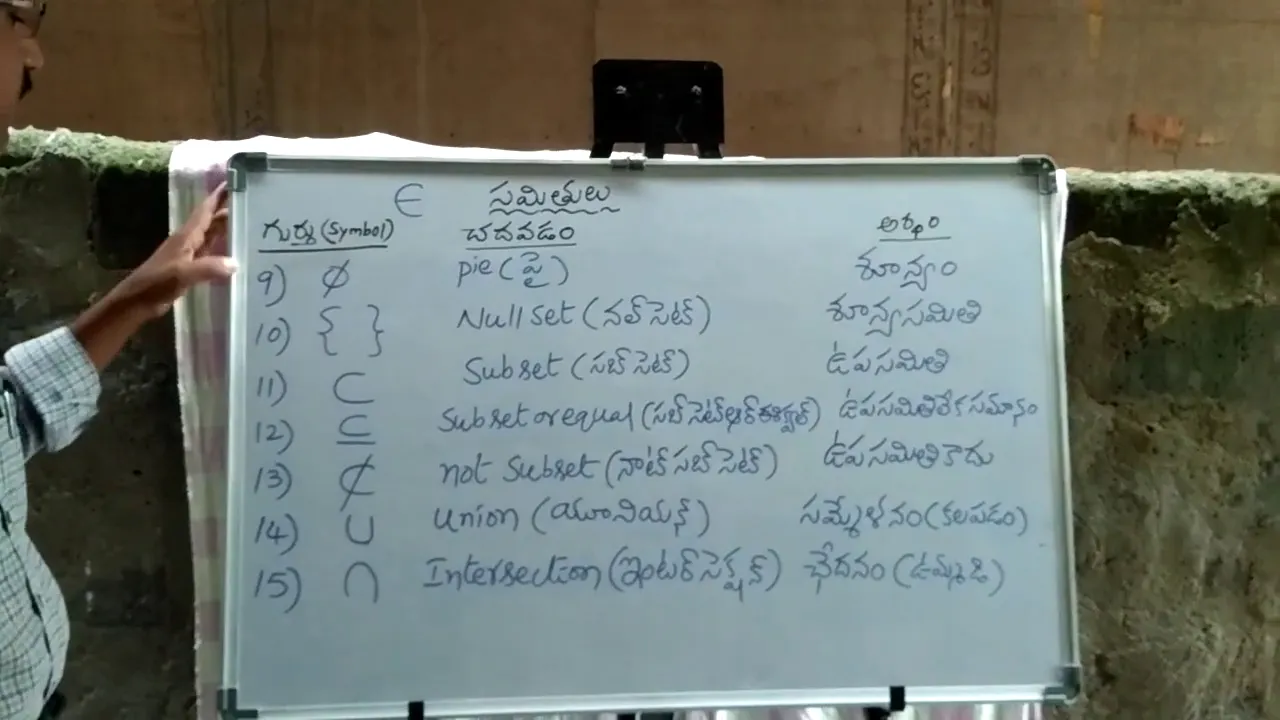 ∈ సమితులు
గుర్తు (Symbol) చదవడం అర్థం
9) ∅ pie (పై) శూన్యం
10) { } Null set (నల్ సెట్) శూన్యసమితి
11) ⊂ Subset (సబ్ సెట్) ఉపసమితి
12) ⊆ Subset or equal (సబ్ సెట్ ఆర్ ఈక్వల్) ఉపసమితి లేక సమానం
13) ⊄ not Subset (నాట్ సబ్ సెట్) ఉపసమితి కాదు
14) ∪ Union (యూనియన్) సమ్మేళనం (కలపడం)
15) ∩ Intersection (ఇంటర్ సెక్షన్) ఛేదనం (ఉమ్మడి)